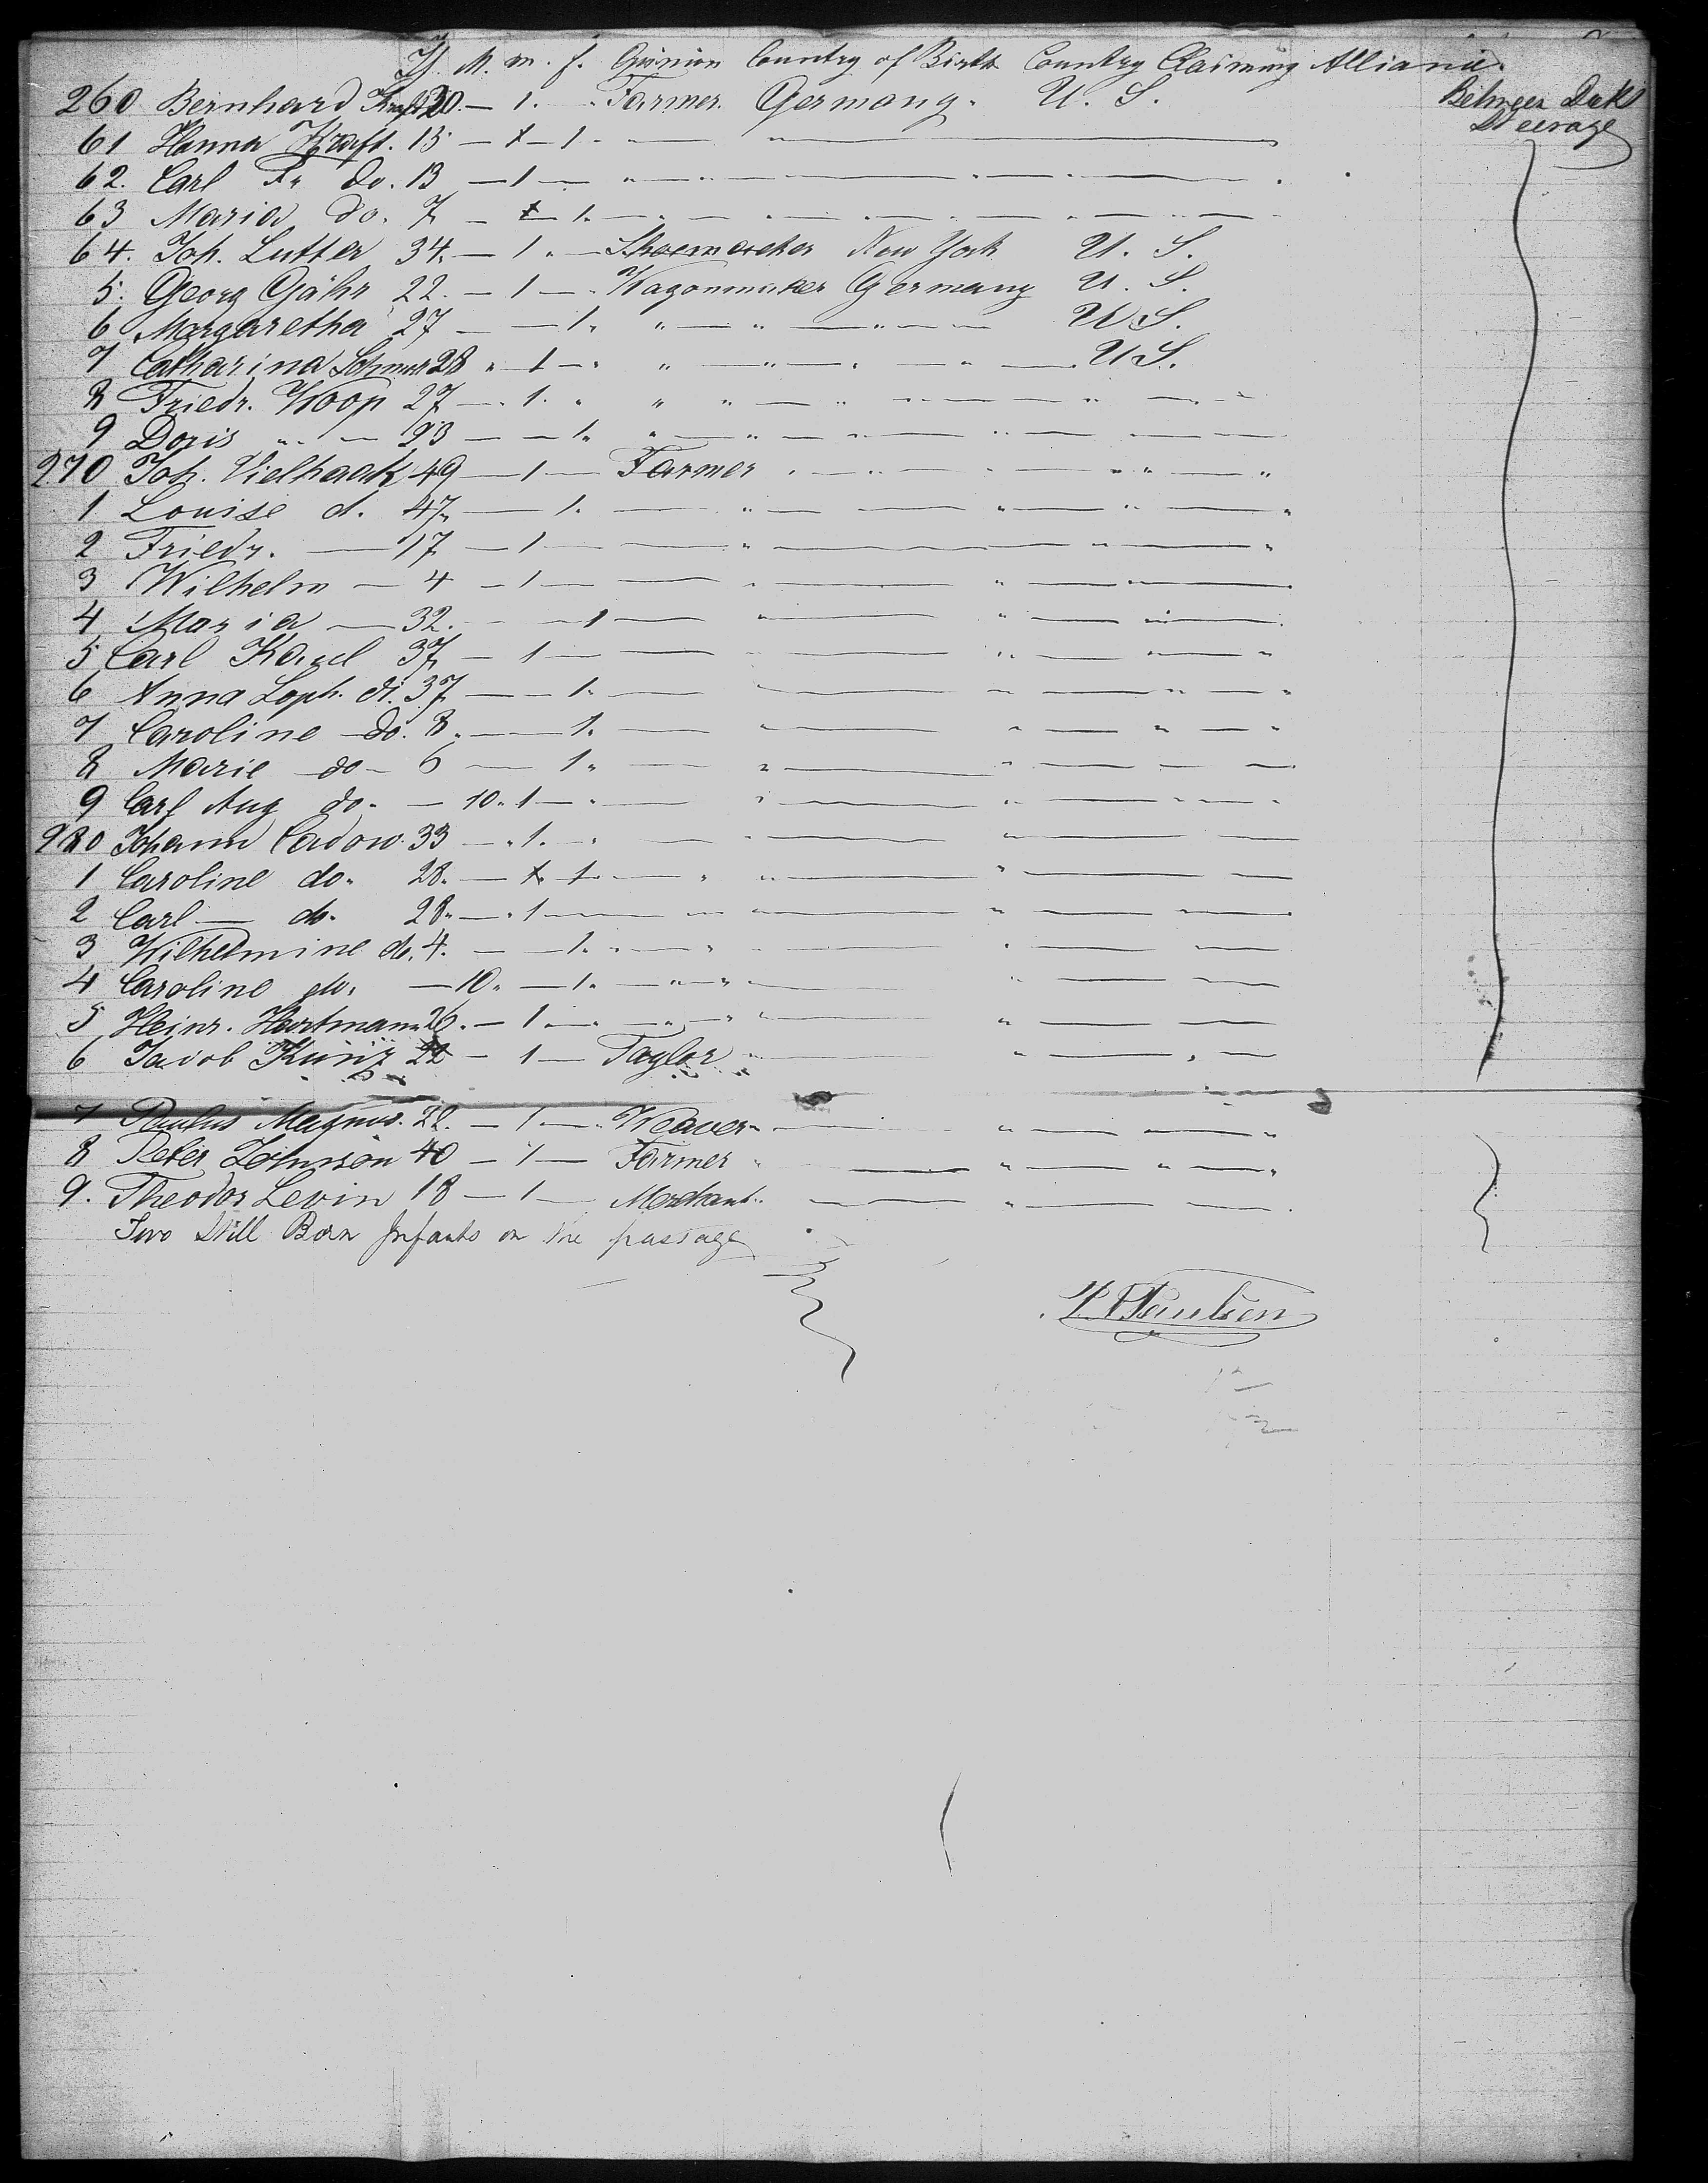 Y. M. m. f. Country of Birth Country Claiming Alliance
260 Bernhard Kraft 20. — 1. — Farmer. Germany. U. S. Between Deks Steerage
61 Hanna Kraft. 15 — 1 — 1.
62. Carl Fr. do. 13 — 1 —
63 Maria do. 7 — 1 — 1.
64. Joh. Lutter 34. — 1 " — Shoemacher New York U. S.
5. Georg Gähr 22. — 1 — Wagonmaker Germany U. S.
6 Margaretha " 27 — — 1. " — " — U. S.
7 Catharina 28 " 1 — " " — " — U S.
8 Friedr. Koop 27 — 1. " " "
9 Doris " — 23 — — 1. " — "
270 Joh. Vielhaak 49 — 1 — Farmer
1 Louise d. 47 — 1.
2 Friedr. — 17 — 1 —
3 Wilhelm — 4 — 1 —
4 Maria — 32. — 1 —
5 Carl 37 — 1 —
6 Anna Soph. d. 37 — — 1.
7 Caroline do. 8. — 1.
8 Marie do — 6 — 1.
9 Carl Aug do. — 10. 1 —
280 Johann Cadow 33 — 1.
1 Caroline do. 28. — 1. 1.
2 Carl — do. 28. — 1 —
3 Wilhelmine do. 4. — 1.
4 Caroline do. — 10. — 1.
5 Heinr. Hartmann 26. — 1 —
6 Jacob Kunz 22 — 1 — Taylor
7 Paulus Magnus. 22. — 1 — Weaver
8 Peter Johnson 40 — 1 — Farmer
9. Theodor Levin 18 — 1 — Merchant
Two Still Born Infants on the passage
Paulsen